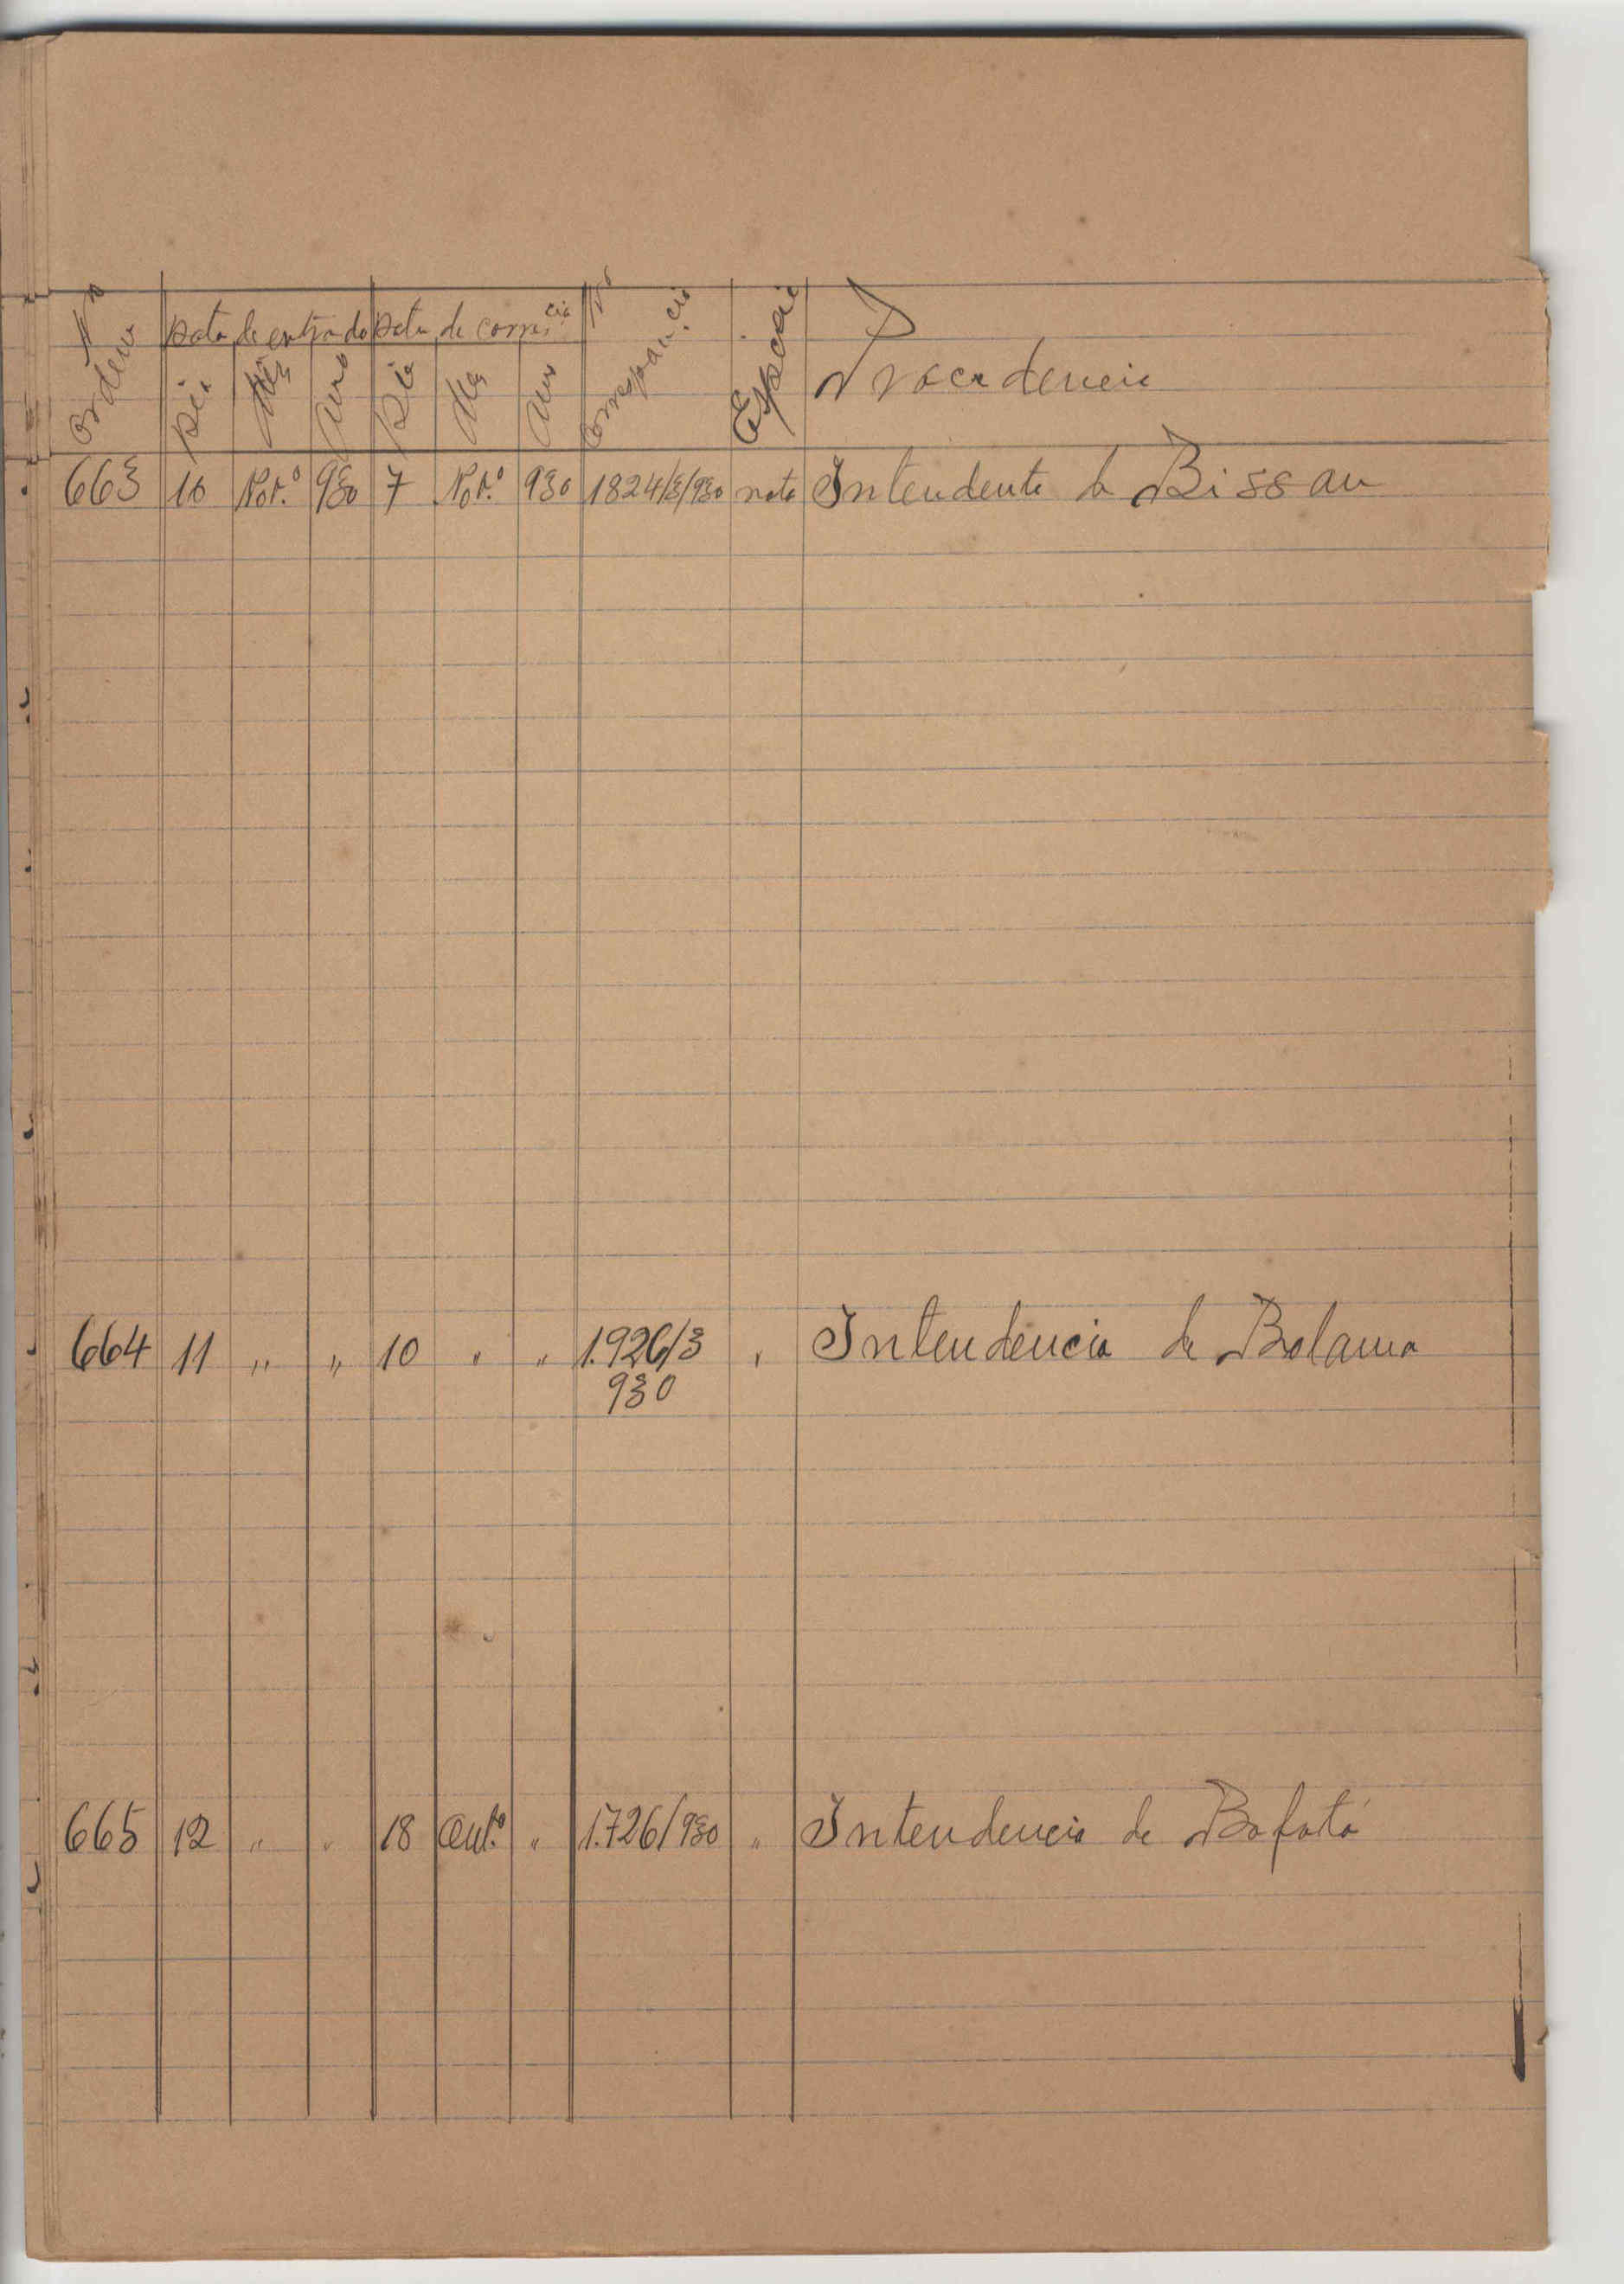 Nº Ordem Data de entrada Data de corres.cia Nº Correspon.cia Especie Procedencia
Dia Mês Ano Dia Mês Ano
663 10 Nov.º 930 7 Nov.º 930 1824/3/930 nota Intendente de Bissau
664 11 " " 10 " " 1.926/3 " Intendencia de Bolama
930
665 12 " " 18 Out.º " 1.726/930 " Intendencia de Bafatá